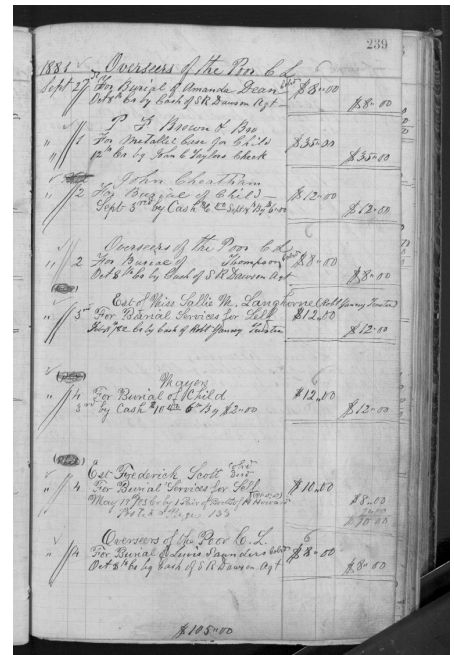 239
1881 Overseers of the Poor C L
Sept 2 For Burial of Amanda Dean Cold $8"00
Oct 8th Cr by Cash of S R Dawson Agt $8"00
P Brown & Bro
" 1 For Metallic Case for Child $35"00
Cr by Check $35"00
John Cheatham
" 2 For Burial of Child $12"00
Sept 3rd by Cash $12"00
Overseers of the Poor C L
" 2 For Burial of Thompson Cold $8"00
Oct 8th Cr by Cash of S R Dawson Agt $8"00
Est of Miss Sallie M. Langhorne (Robt Yancey Trustee)
" 3rd For Burial Services for Self $12"00
Cr by Cash of Robt Yancey Trustee $12"00
Mayer
" 4 For Burial of Child $12"00
by Cash $10 By $2"00 $12"00
Est Frederick Scott Cold
" 4 For Burial Services for Self $10"00
May 19th Cr by 1 Pair of $8"00
Page 135
$10"00
Overseers of the Poor C. L.
" 4 For Burial of Lewis Saunders Cold $8"00
Oct 8th Cr by Cash of S R Dawson Agt $8"00
$105"00